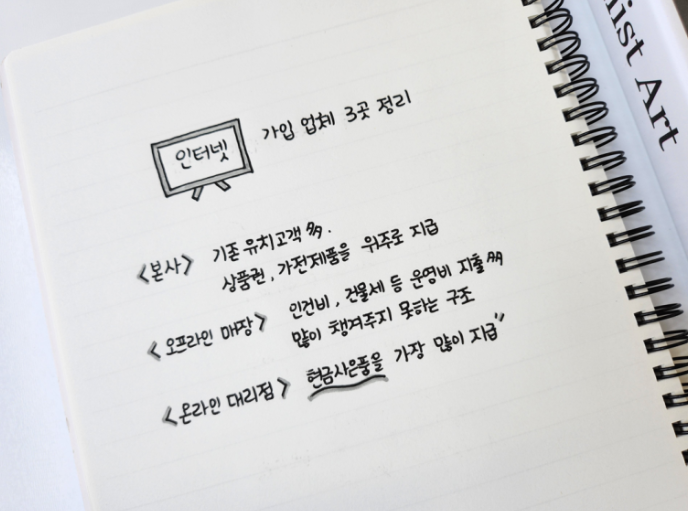 인터넷 가입 업체 3곳 정리
<본사> 기존 유치고객 多.
상품권, 가전제품을 위주로 지급
<오프라인 매장> 인건비, 건물세 등 운영비 지출 多
많이 챙겨주지 못하는 구조
<온라인 대리점> 현금사은품을 가장 많이 지급"
ist Art